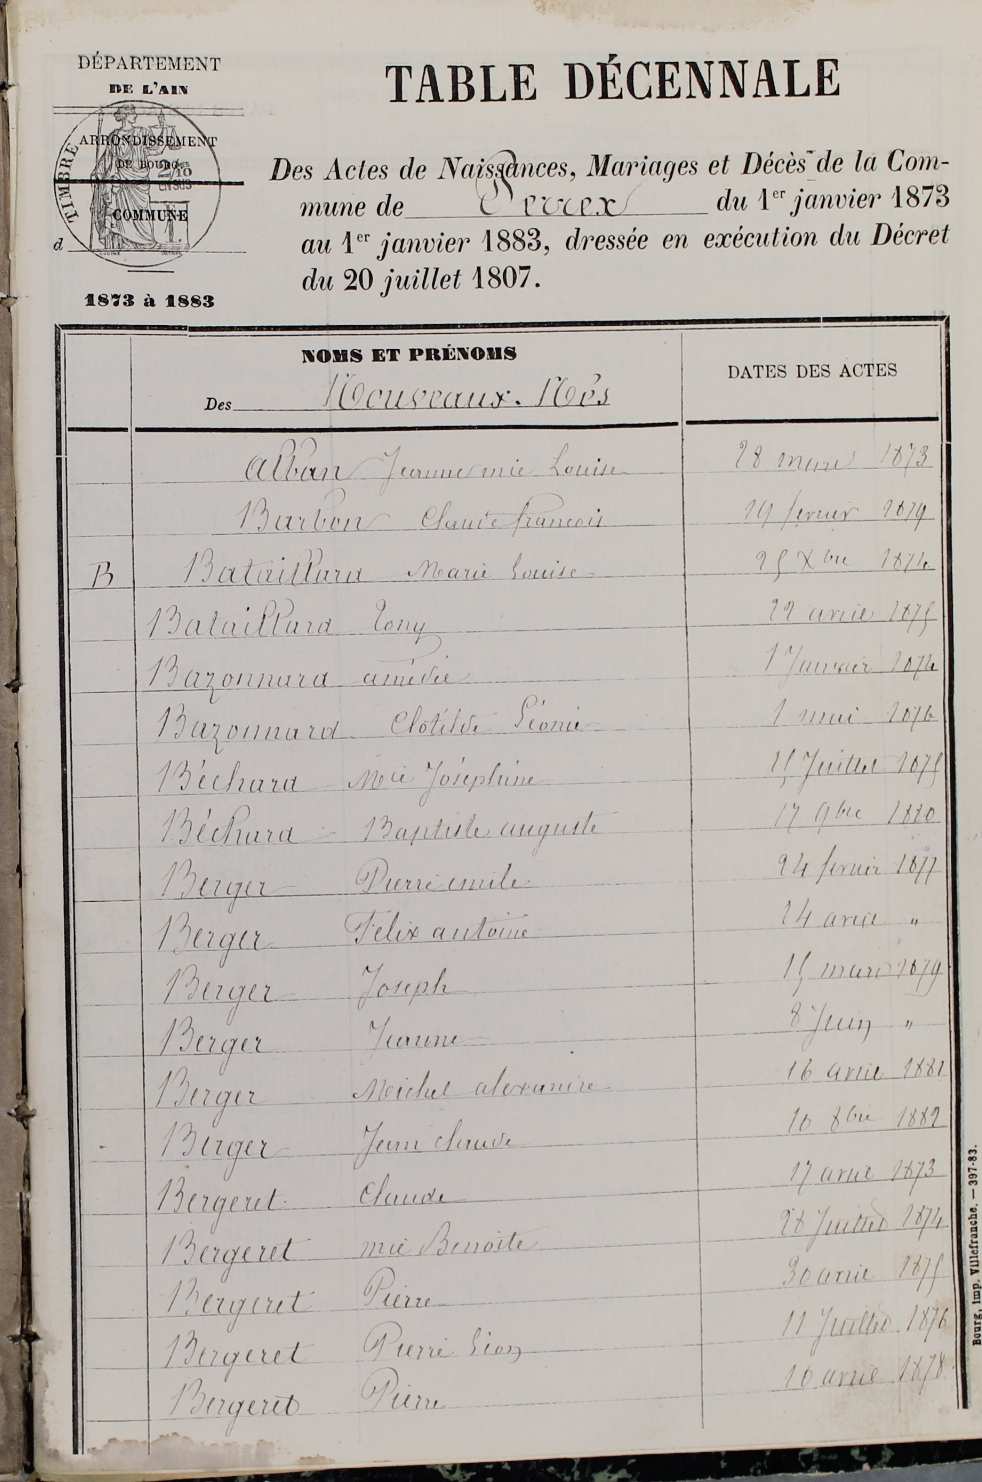 DÉPARTEMENT
DE L'AIN
TIMBRE
ARRONDISSEMENT
DE BOURG
COMMUNE
d
1873 à 1883
TABLE DÉCENNALE
Des Actes de Naissances, Mariages et Décès de la Com-
mune de Perrex du 1er janvier 1873
au 1er janvier 1883, dressée en exécution du Décret
du 20 juillet 1807.
NOMS ET PRÉNOMS
Des Nouveaux-Nés
DATES DES ACTES
Alban Jeanne mie Louise 28 mars 1873
Barbon Claude françois 19 février 1879
B Bataillard Marie Louise 25 Xbre 1874
Bataillard Tony 22 avril 1875
Bazonnard amédée 1 Janvier 1874
Bazonnard Clotilde Léonie 1 mai 1876
Béchard Mie Joséphine 15 Juillet 1875
Béchard Baptiste auguste 17 9bre 1880
Berger Pierre emile 24 fevrier 1877
Berger Félix antoine 24 avril "
Berger Joseph 15 mars 1879
Berger Jeanne 8 Juin "
Berger Michel alexandre 16 avril 1881
Berger Jean claude 10 8bre 1882
Bergeret Claude 17 avril 1873
Bergeret mie Benoite 28 Juillet 1874
Bergeret Pierre 30 avril 1875
Bergeret Pierre Léon 11 Juillet 1876
Bergeret Pierre 10 avril 1878
Bourg, imp. Villefranche. — 397-83.